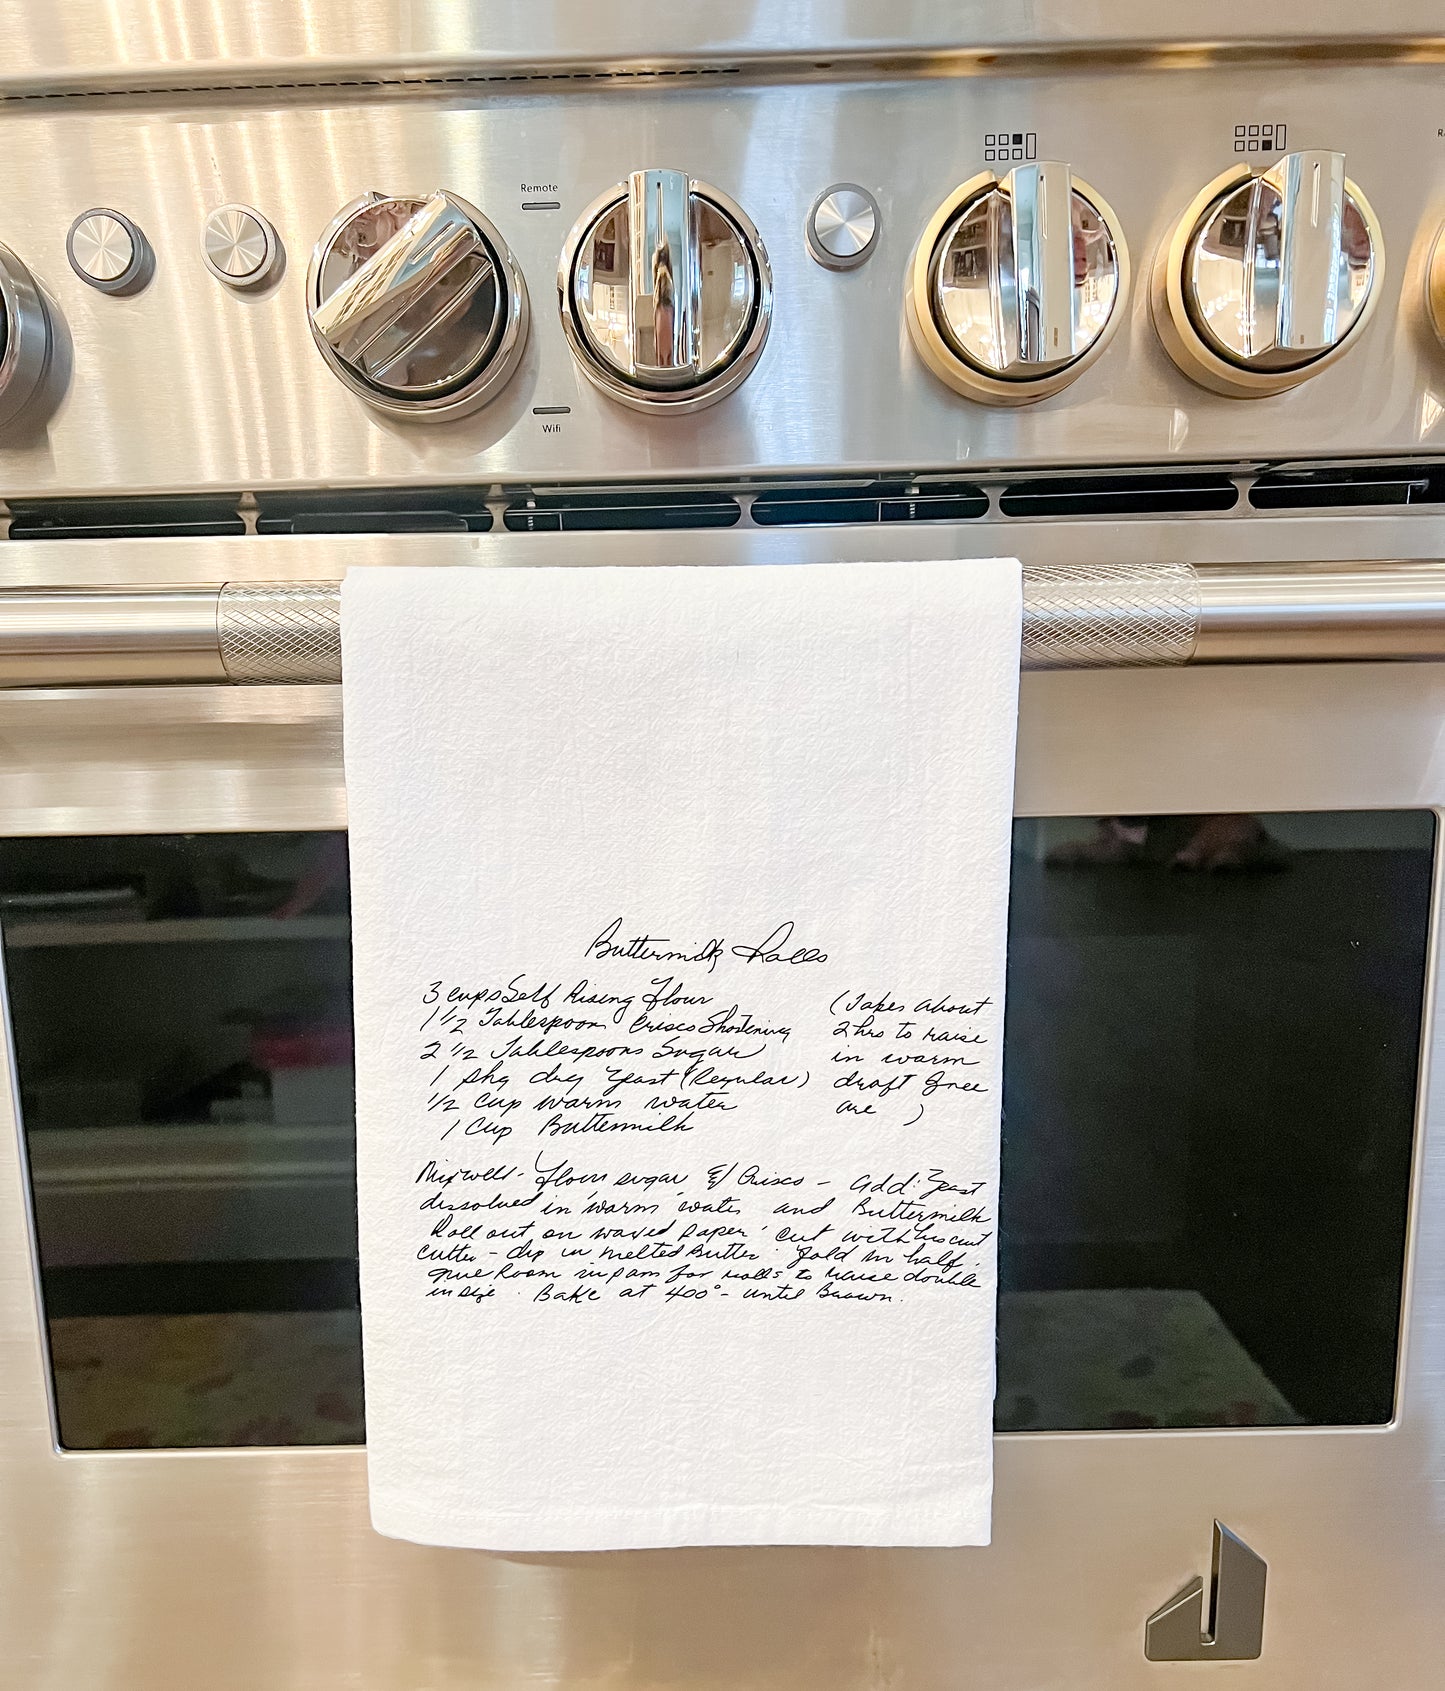 Remote
Wifi
Buttermilk Rolls
3 cups Self Rising Flour
1 1/2 Tablespoons Crisco Shortening
2 1/2 Tablespoons Sugar
1 pkg dry Yeast (Regular)
1/2 cup warm water
1 cup Buttermilk
(Takes about
2 hrs to raise
in warm
draft free
are )
Mix well - flour sugar & Crisco - add: Yeast
dissolved in warm water and Buttermilk
Roll out on waxed paper cut with biscuit
cutter - dip in melted Butter. Fold in half.
give Room in pans for rolls to raise double
in size. Bake at 400° - until Brown.